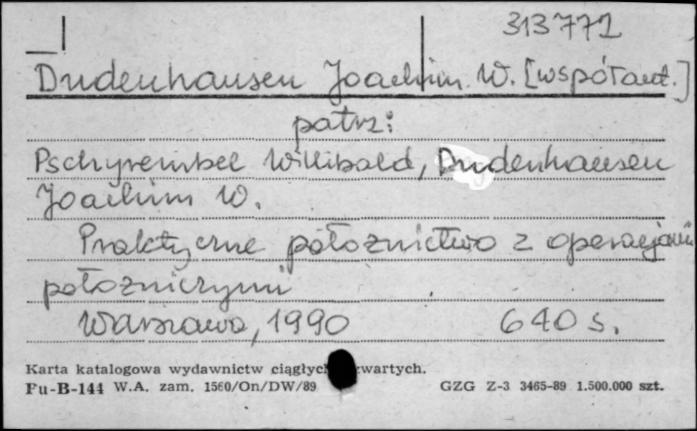 313772
Dudenhausen Joachim W. [współaut.]
patrz:
Pschyrembel Willibald, Dudenhausen
Joachim W.
Praktyczne położnictwo z operacjami
położniczymi
Warszawa, 1990 640 s.
Karta katalogowa wydawnictw ciągłych zwartych.
Pu-B-144 W.A. zam. 1560/On/DW/89 GZG Z-3 3465-89 1.500.000 szt.